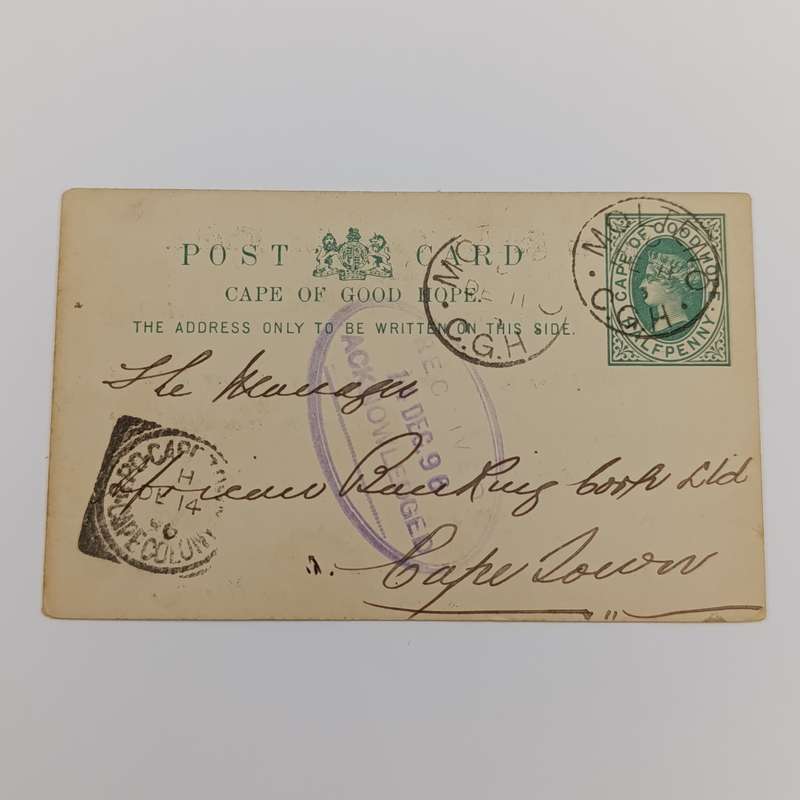 POST CARD
CAPE OF GOOD HOPE.
THE ADDRESS ONLY TO BE WRITTEN ON THIS SIDE.
CAPE OF GOOD HOPE
HALFPENNY
MOLTENO
C.G.H
MO
DE 11
C.G.H
RECEIVED
14 DEC 96
ACKNOWLEDGED
The Manager
African Banking Corpn Ltd
Cape Town
CAPE TOWN
H
DE 14
96
CAPE COLONY